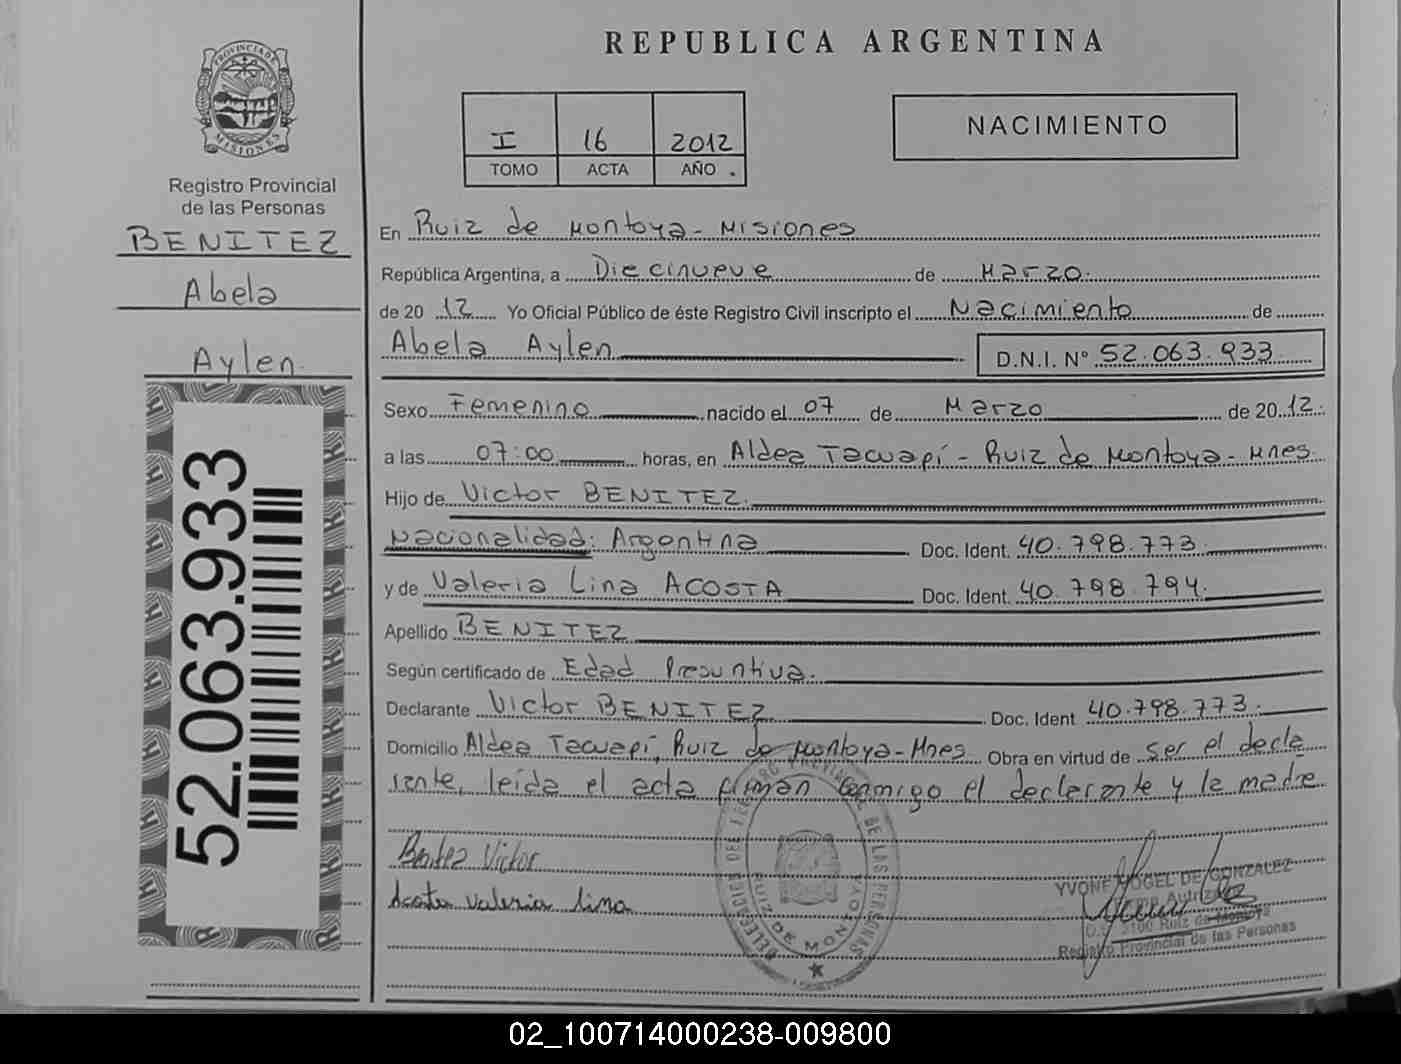 PROVINCIA DE
MISIONES
Registro Provincial
de las Personas
BENITEZ
Abela
Aylen
52.063.933
REPUBLICA ARGENTINA
I 16 2012
TOMO ACTA AÑO
NACIMIENTO
En Ruiz de Montoya - Misiones
República Argentina, a Diecinueve de Marzo
de 20 12 Yo Oficial Público de éste Registro Civil inscripto el Nacimiento de
Abela Aylen D.N.I. Nº 52.063.933
Sexo Femenino nacido el 07 de Marzo de 20 12
a las 07:00 horas, en Aldea Tacuapí - Ruiz de Montoya - Mnes.
Hijo de Victor BENITEZ
Nacionalidad: Argentina Doc. Ident. 40.798.773
y de Valeria Lina ACOSTA Doc. Ident. 40.798.794
Apellido BENITEZ
Según certificado de Edad Presuntiva.
Declarante Victor BENITEZ Doc. Ident 40.798.773
Domicilio Aldea Tacuapí, Ruiz de Montoya - Mnes Obra en virtud de ser el decla
rante, leída el acta firman conmigo el declarante y la madre
Benitez Victor
Acosta Valeria Lina
DELEGACION DEL REGISTRO PROVINCIAL DE LAS PERSONAS
RUIZ DE MONTOYA
YVONE VOGEL DE GONZALEZ
Firma Autorizada
3100 Ruiz de Montoya
Registro Provincial de las Personas
02_100714000238-009800